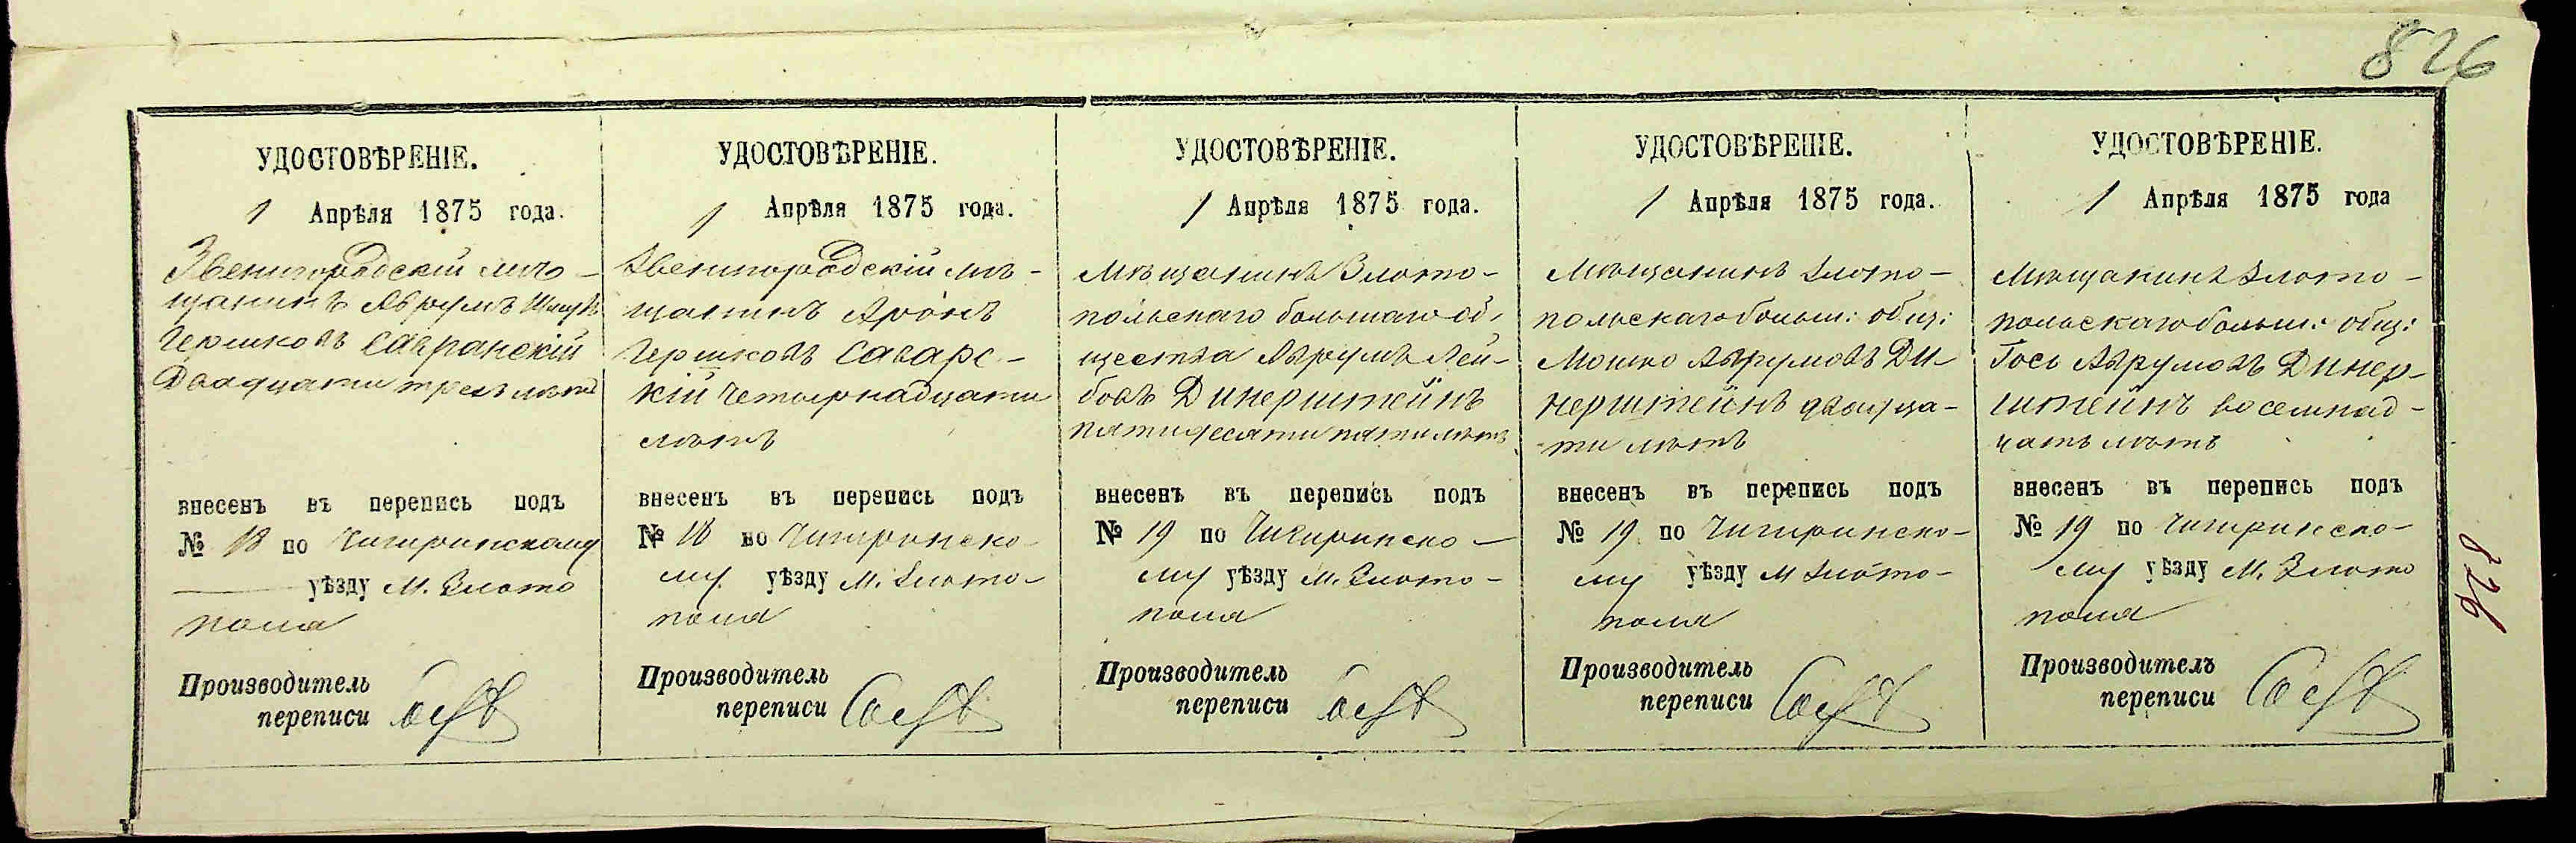 826
УДОСТОВѢРЕНІЕ.
1 Апрѣля 1875 года.
Звенигородскій мѣ-
щанинъ Аврумъ Шмуль
Гершковъ Савранскій
Двадцати трехъ лѣтъ
внесенъ въ перепись подъ
№ 18 по Чигиринскому
уѣзду М. Злото
поля
Производитель
переписи
УДОСТОВѢРЕНІЕ.
1 Апрѣля 1875 года.
Звенигородскій мѣ-
щанинъ Аронъ
Гершковъ
кій четырнадцати
лѣтъ
внесенъ въ перепись подъ
№ 18 по Чигиринско-
му уѣзду М. Злото-
поля
Производитель
переписи
УДОСТОВѢРЕНІЕ.
1 Апрѣля 1875 года.
Мѣщанинъ Злото-
польскаго большаго об-
щества Аврумъ Лей-
бовъ Динерштейнъ
пятидесяти пяти лѣтъ
внесенъ въ перепись подъ
№ 19 по Чигиринско-
му уѣзду М. Злото-
поля
Производитель
переписи
УДОСТОВѢРЕНІЕ.
1 Апрѣля 1875 года.
Мѣщанинъ Злото-
польскаго больш: общ:
Мошко Аврумовъ Ди-
нерштейнъ двадца-
ти лѣтъ
внесенъ въ перепись подъ
№ 19 по Чигиринско-
му уѣзду М Злото-
поля
Производитель
переписи
УДОСТОВѢРЕНІЕ.
1 Апрѣля 1875 года
Мѣщанинъ Злото-
польскаго больш: общ:
Гось Аврумовъ Динер-
штейнъ восемнад-
цать лѣтъ
внесенъ въ перепись подъ
№ 19 по Чигиринско-
му уѣзду М. Злото
поля
Производитель
переписи
826